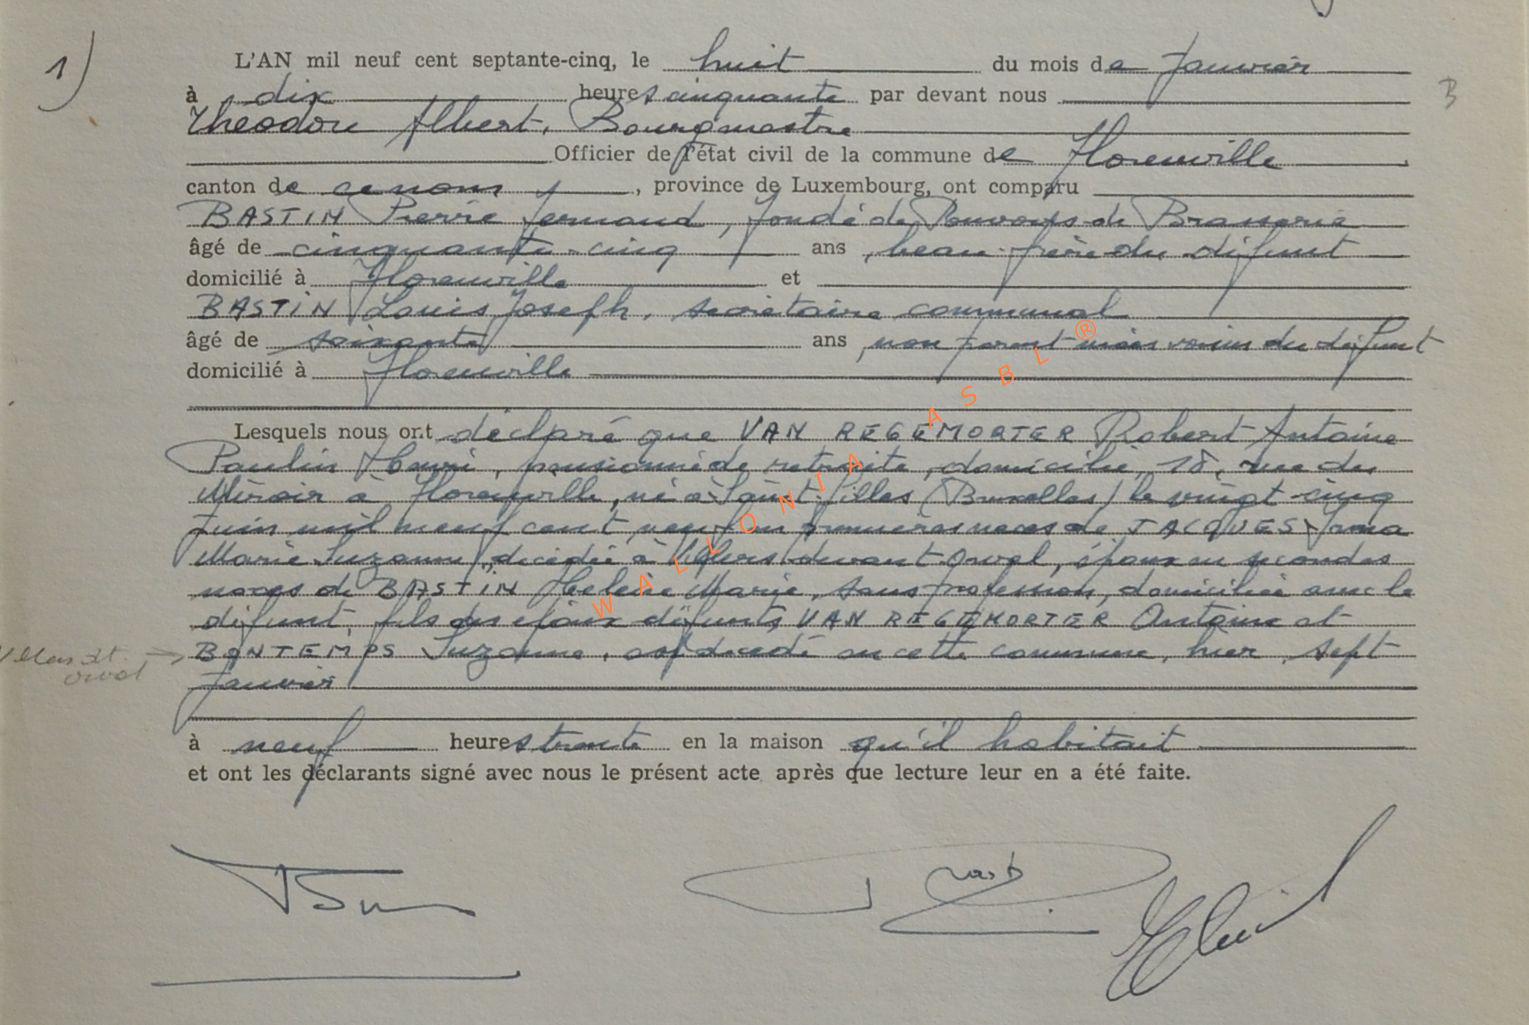 1)
L'AN mil neuf cent septante-cinq, le huit du mois de Janvier
à dix heures cinquante par devant nous
B
Théodore Albert, Bourgmestre
Officier de l'état civil de la commune de Florenville
canton de ce nom, province de Luxembourg, ont comparu
BASTIN Pierre Fernand, fondé de Pouvoirs de Brasserie
âgé de cinquante-cinq ans, beau-frère du défunt
domicilié à Florenville et
BASTIN Louis Joseph, secrétaire communal
âgé de soixante ans, non parent mais voisin du défunt
domicilié à Florenville
Lesquels nous ont déclaré que VAN REGEMORTER Robert Antoine
Paulin Henri, pensionné de retraite, domicilié, 18, rue du
Miroir à Florenville, né à Saint-Gilles (Bruxelles) le vingt-cinq
Juin mil neuf cent neuf en premières noces de JACQUES Irma
Marie Suzanne, décédée à Villers devant Orval, époux en secondes
noces de BASTIN Hélène Marie, sans profession, domiciliée avec le
défunt, fils des époux défunts VAN REGEMORTER Antoine et
Villers dt.
Orval
BONTEMPS Suzanne, est décédé en cette commune, hier, sept
Janvier
à neuf heures trente en la maison qu'il habitait
et ont les déclarants signé avec nous le présent acte après que lecture leur en a été faite.
WALLONIA ASBL ®